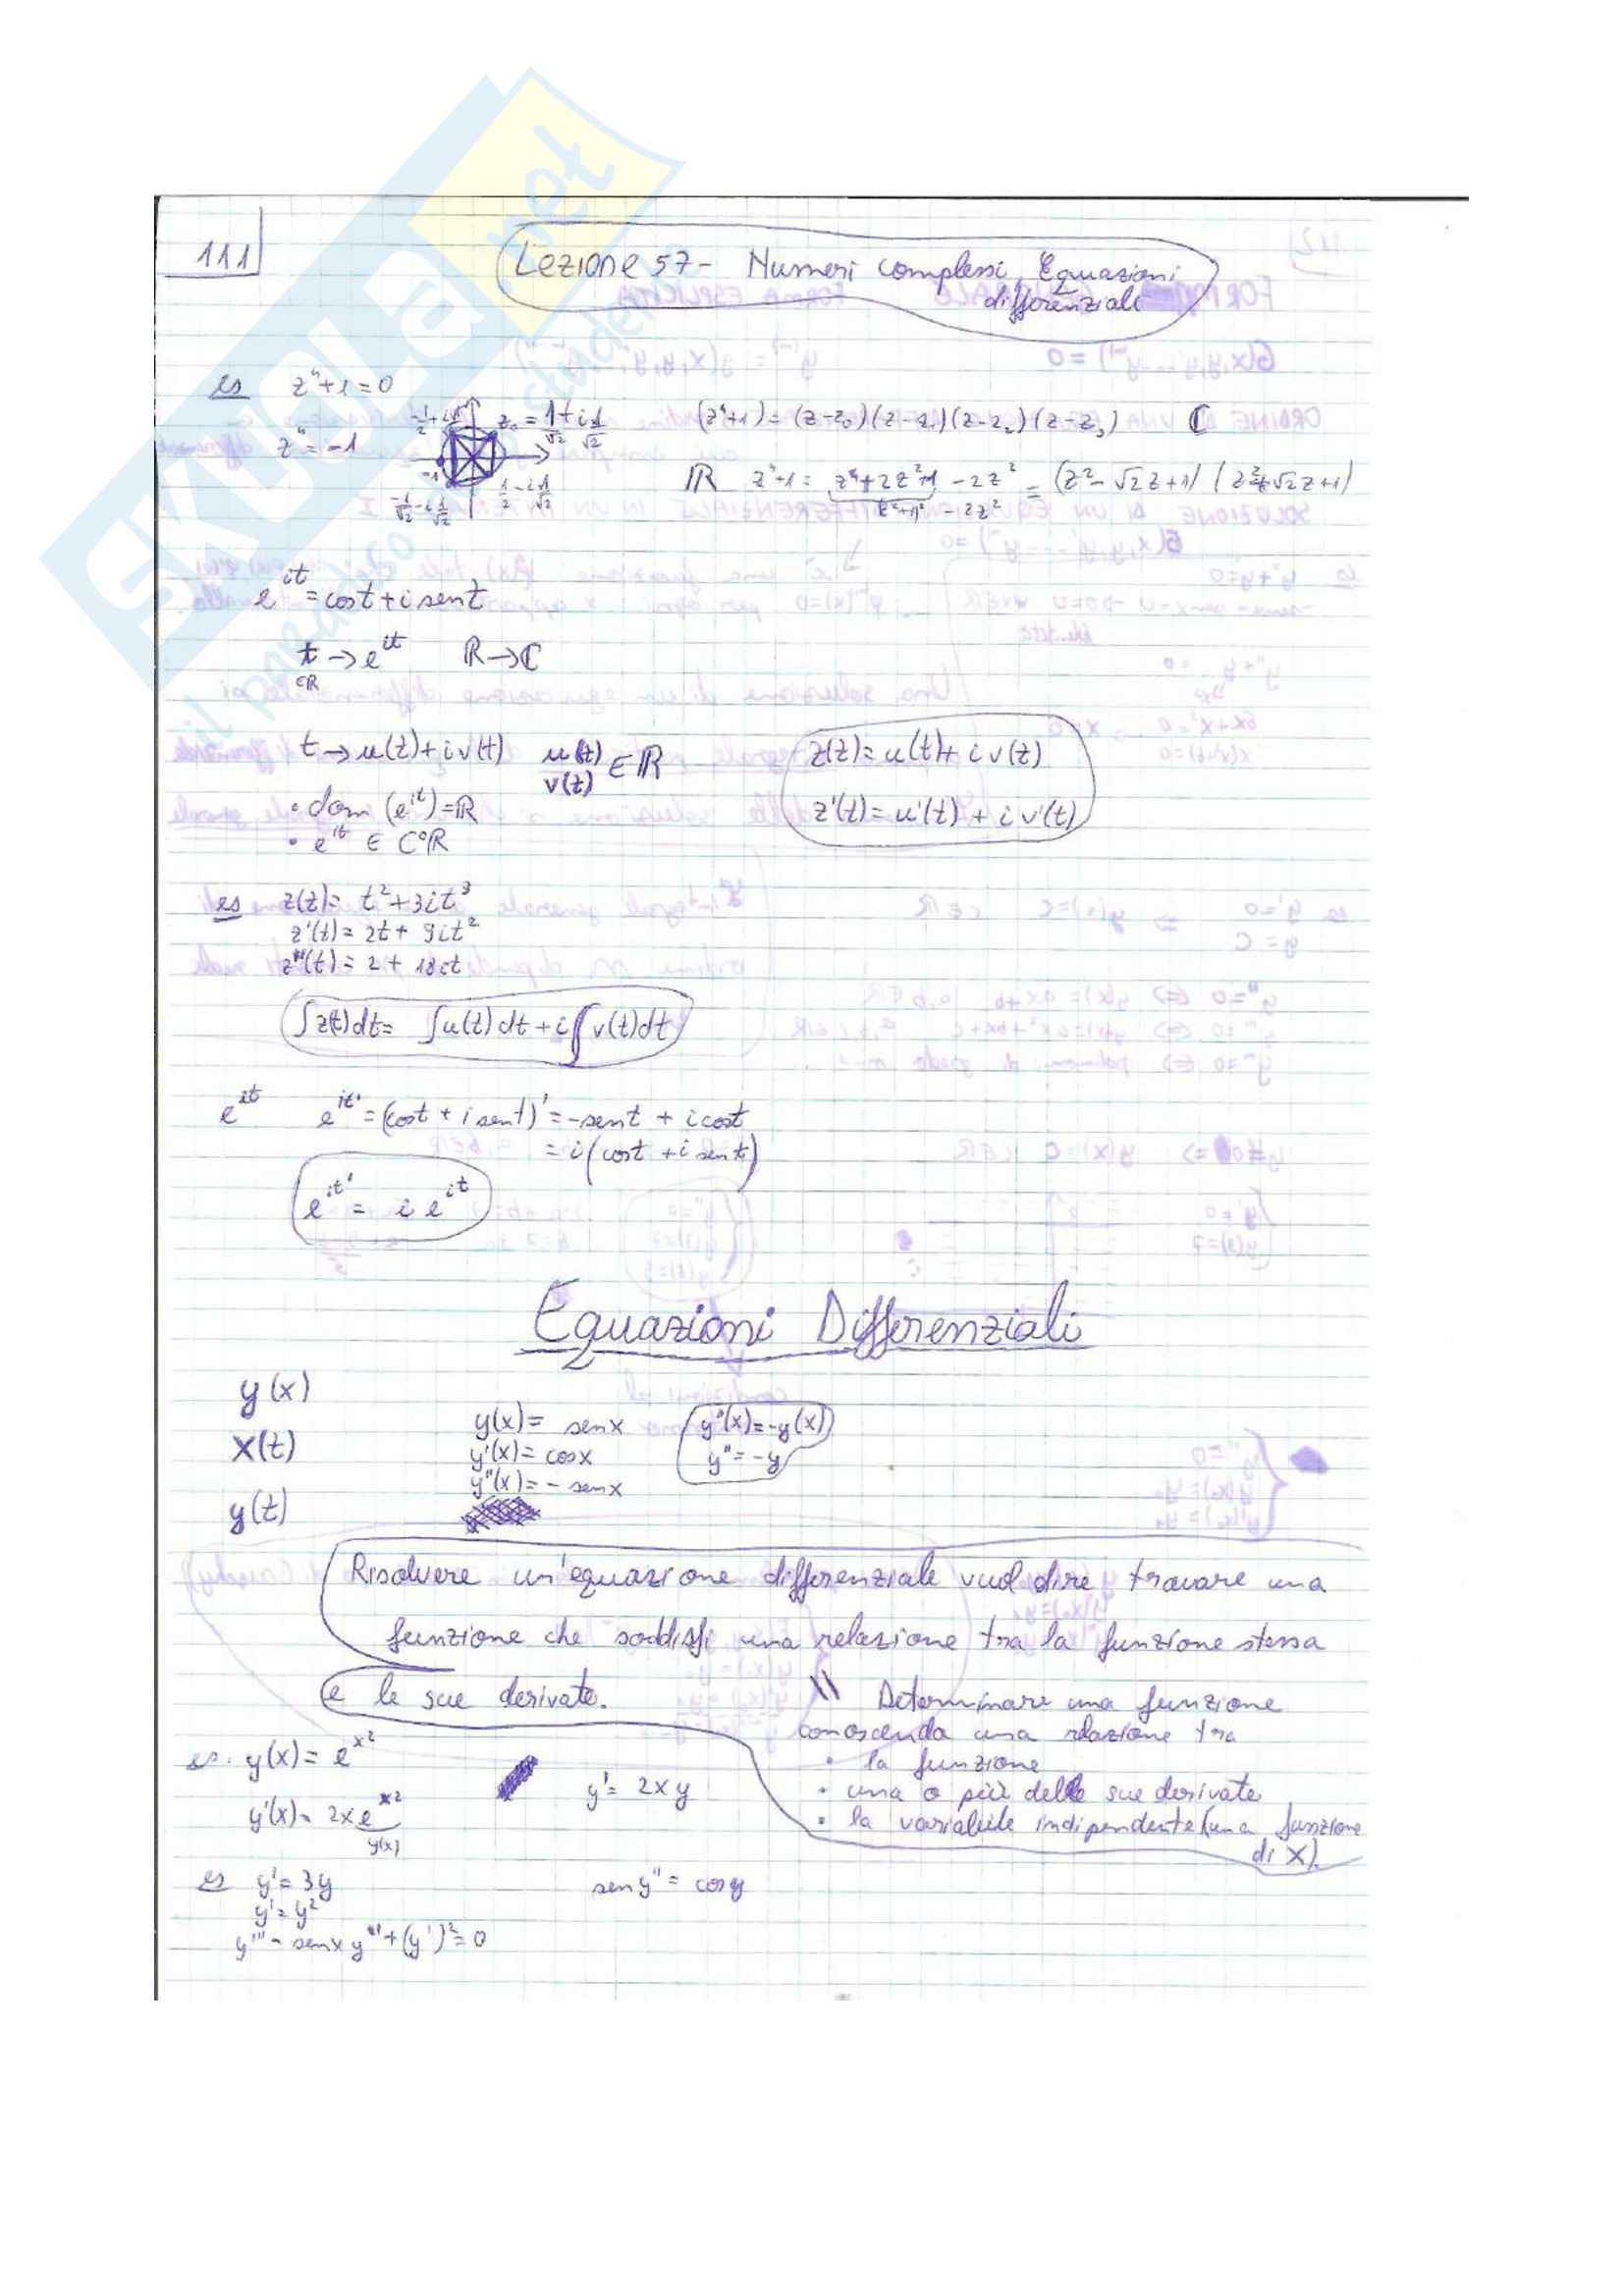 111
Lezione 57 - Numeri complessi, Equazioni
differenziali
es z⁴+1=0
z⁴=-1
z₀ = 1/√2 + i 1/√2
-1
-1/√2 - i 1/√2
1/2 - i 1/√2
(z⁴+1) = (z-z₀)(z-z₁)(z-z₂)(z-z₃) ℂ
ℝ z⁴+1 = z⁴+2z²+1 - 2z² = (z²-√2z+1)(z²+√2z+1)
(z²+1)² - 2z²
e^{it} = cost + i sent
t → e^{it} ℝ→ℂ
∈ℝ
t → u(t)+iv(t) u(t) v(t) ∈ ℝ
z(t) = u(t) + i v(t)
z'(t) = u'(t) + i v'(t)
• dom (e^{it}) = ℝ
• e^{it} ∈ C⁰ℝ
es z(t) = t²+3it³
z'(t) = 2t + 9it²
z''(t) = 2 + 18it
∫z(t)dt = ∫u(t)dt + i∫v(t)dt
e^{it} e^{it}' = (cost + i sent)' = -sent + i cost
= i(cost + i sent)
e^{it}' = i e^{it}
Equazioni Differenziali
y(x)
x(t)
y(t)
y(x) = senx
y'(x) = cosx
y''(x) = - senx
y''(x) = -y(x)
y'' = -y
Risolvere un'equazione differenziale vuol dire trovare una
funzione che soddisfi una relazione tra la funzione stessa
e le sue derivate. \\ Determinare una funzione
conoscendo una relazione tra
• la funzione
• una o più delle sue derivate
• la variabile indipendente (una funzione
di x).
es. y(x) = e^{x²}
y'(x) = 2xe^{x²}
y(x)
y' = 2xy
es y' = 3y
y' = y²
y''' - senx y'' + (y')² = 0
seny'' = cosy